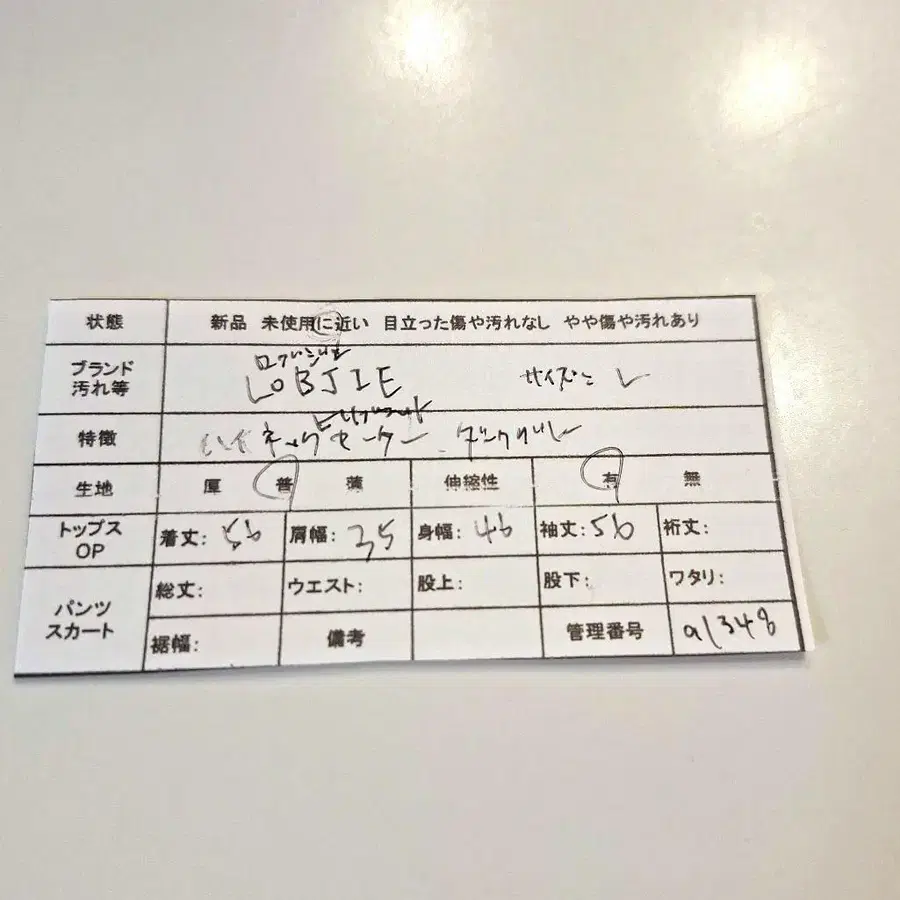 状態 新品 未使用に近い 目立った傷や汚れなし やや傷や汚れあり
ブランド
汚れ等
LOBJIE サイズ L
特徴
ハイネックセーター
生地 厚 普 薄 伸縮性 有 無
トップス
OP
着丈: 56 肩幅: 35 身幅: 46 袖丈: 56 裄丈:
パンツ
スカート
総丈: ウエスト: 股上: 股下: ワタリ:
裾幅: 備考 管理番号 a1348